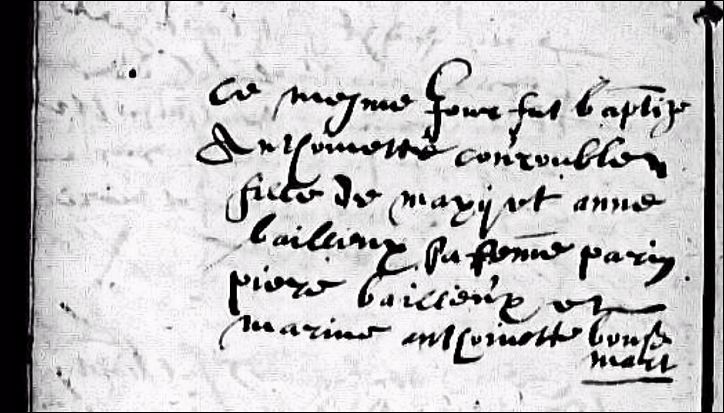 Ce mesme Jour fut baptize
Anthoinette conroublen
fille de maxi et anne
bailleux sa feme parin
piere bailleux et
marine anthoinette bonse
mart